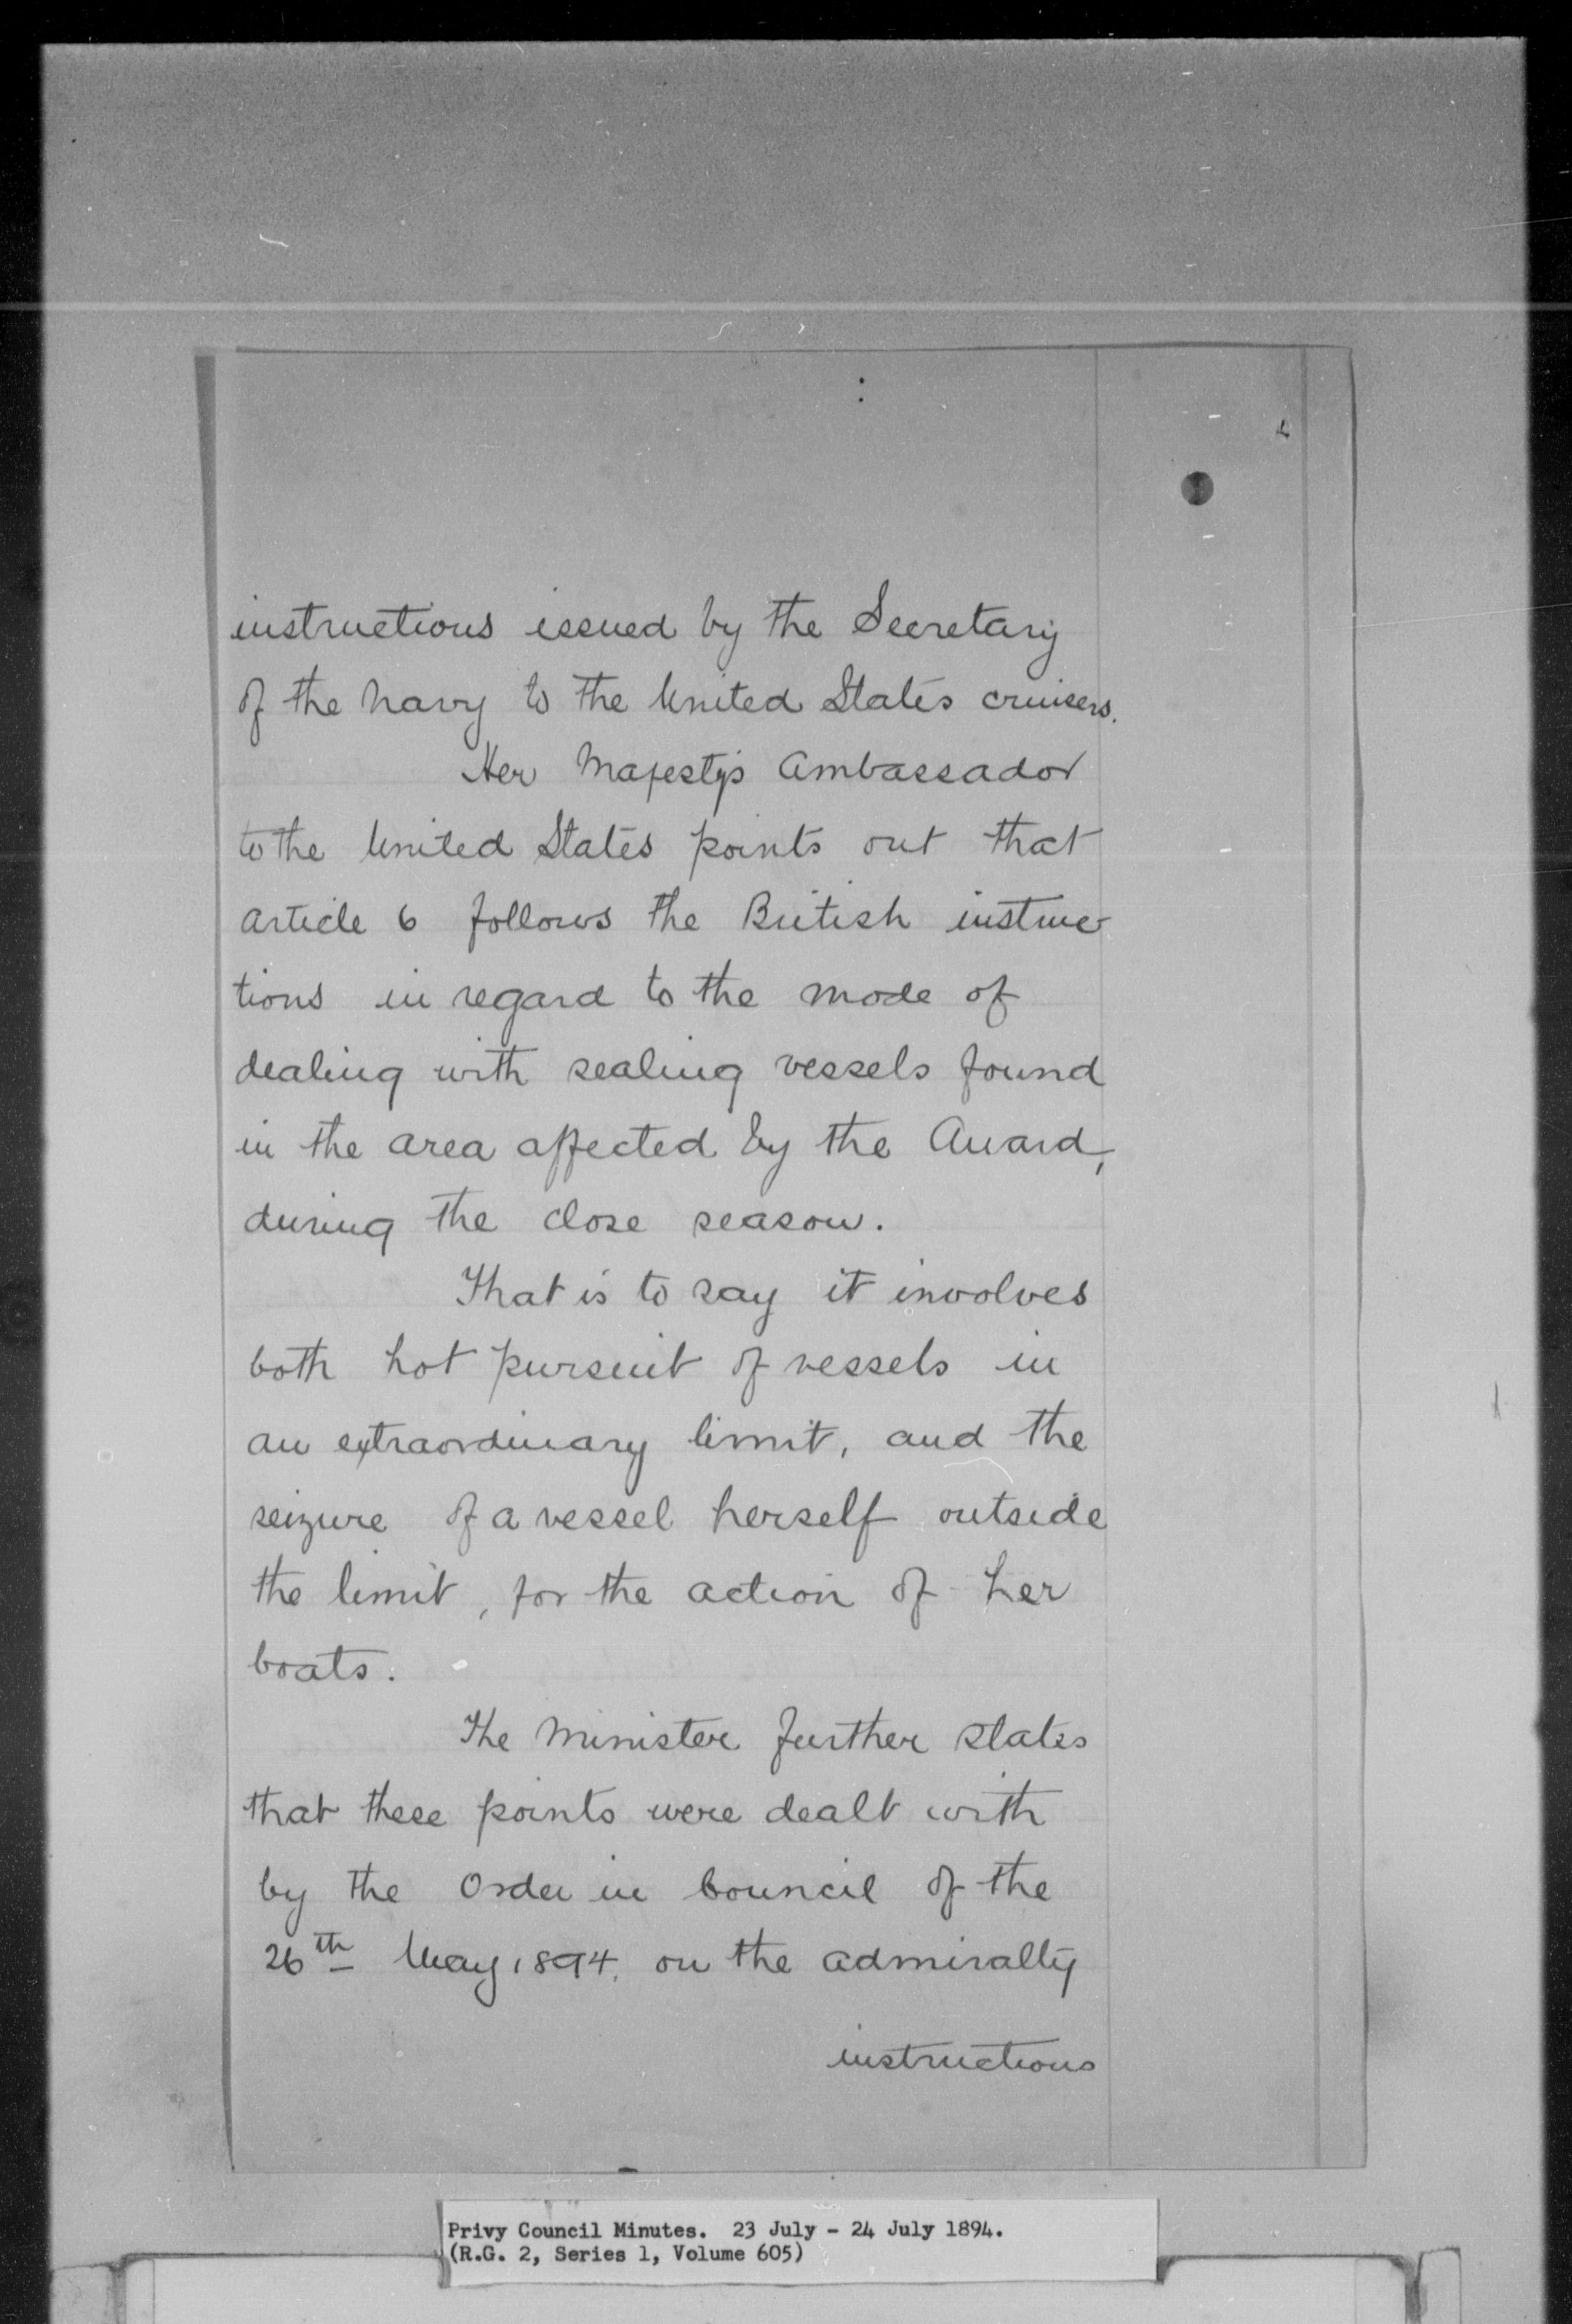 4
instructions issued by the Secretary
of the Navy to the United States cruisers.
Her Majesty's Ambassador
to the United States points out that
article 6 follows the British instruc-
tions in regard to the mode of
dealing with sealing vessels found
in the area affected by the Award,
during the close season.
That is to say it involves
both hot pursuit of vessels in
an extraordinary limit, and the
seizure of a vessel herself outside
the limit, for the action of her
boats.
The Minister further states
that these points were dealt with
by the Order in Council of the
26th May 1894. on the admiralty
instructions
Privy Council Minutes. 23 July - 24 July 1894.
(R.G. 2, Series 1, Volume 605)